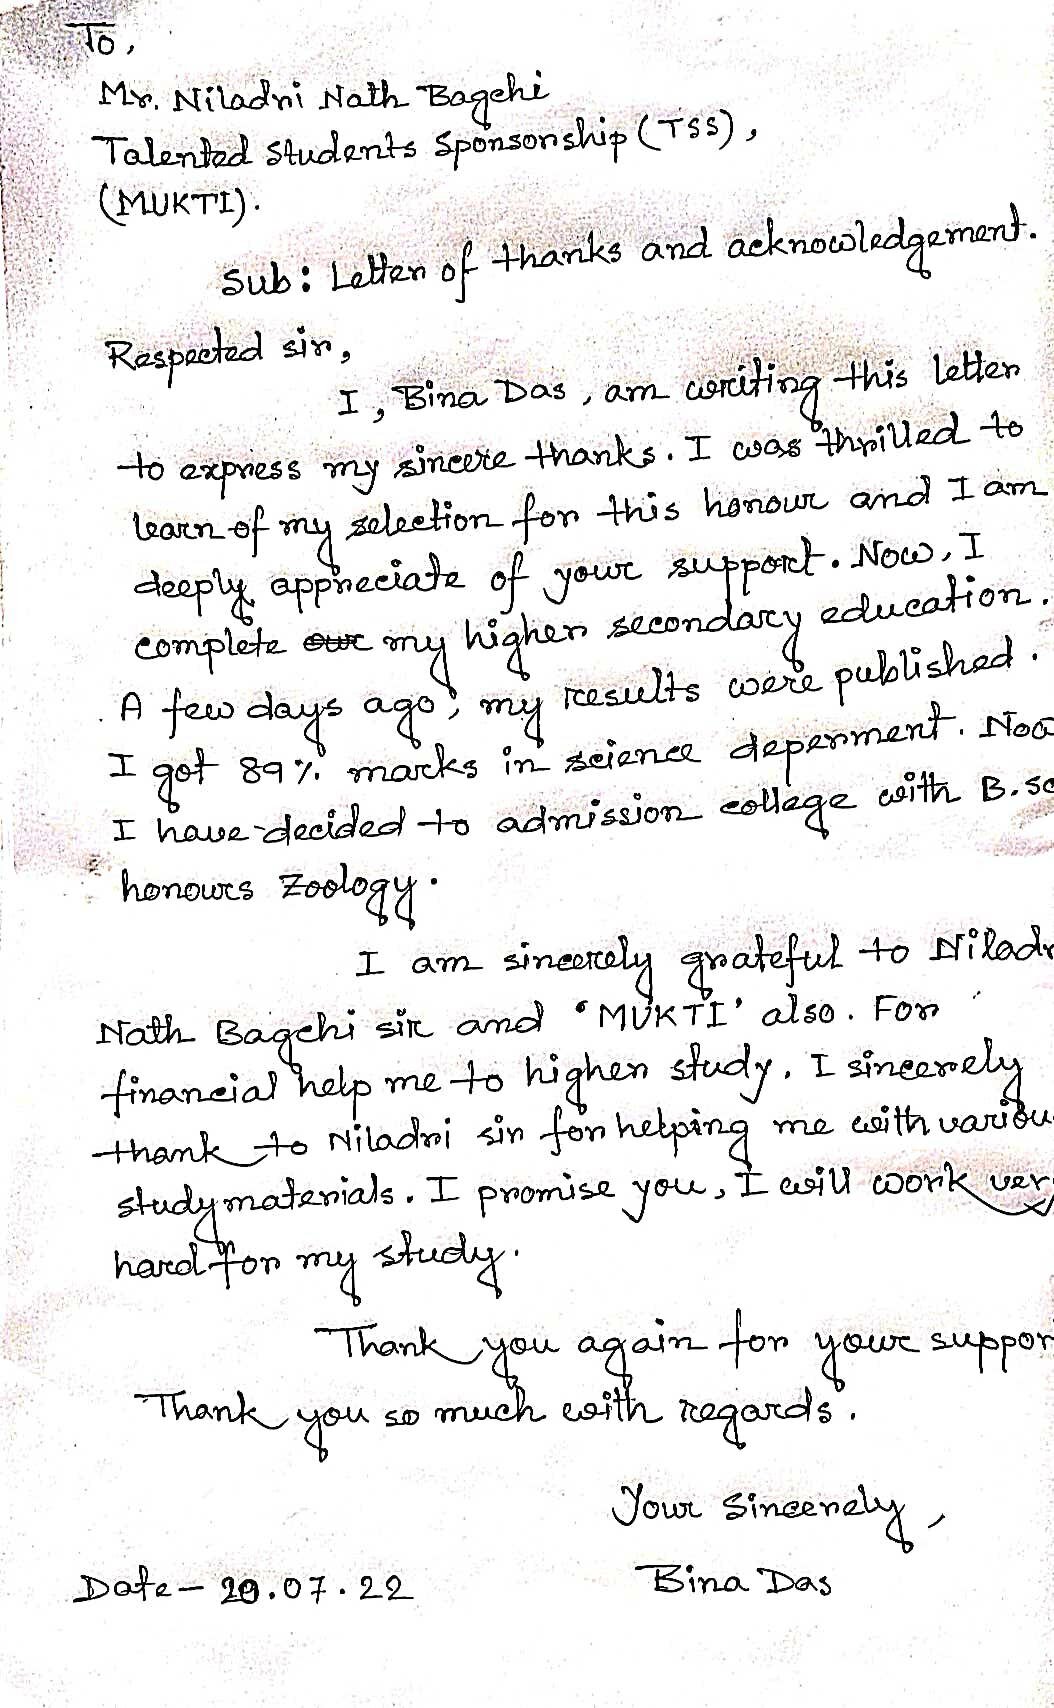 To,
Mr. Niladri Nath Bagchi
Talented Students Sponsorship (TSS),
(MUKTI).
Sub: Letter of thanks and acknowledgement.
Respected sir,
I, Bina Das, am writing this letter
to express my sincere thanks. I was thrilled to
learn of my selection for this honour and I am
deeply appreciate of your support. Now, I
complete our my higher secondary education.
A few days ago, my results were published.
I got 89% marks in science deperment. Now
I have decided to admission college with B.sc
honours Zoology.
I am sincerely grateful to Niladr
Nath Bagchi sir and 'MUKTI' also. For
financial help me to higher study. I sincerely
thank to Niladri sir for helping me with variou
study materials. I promise you, I will work very
hard for my study.
Thank you again for your suppor
Thank you so much with regards.
Your Sincerely,
Date - 20.07.22 Bina Das